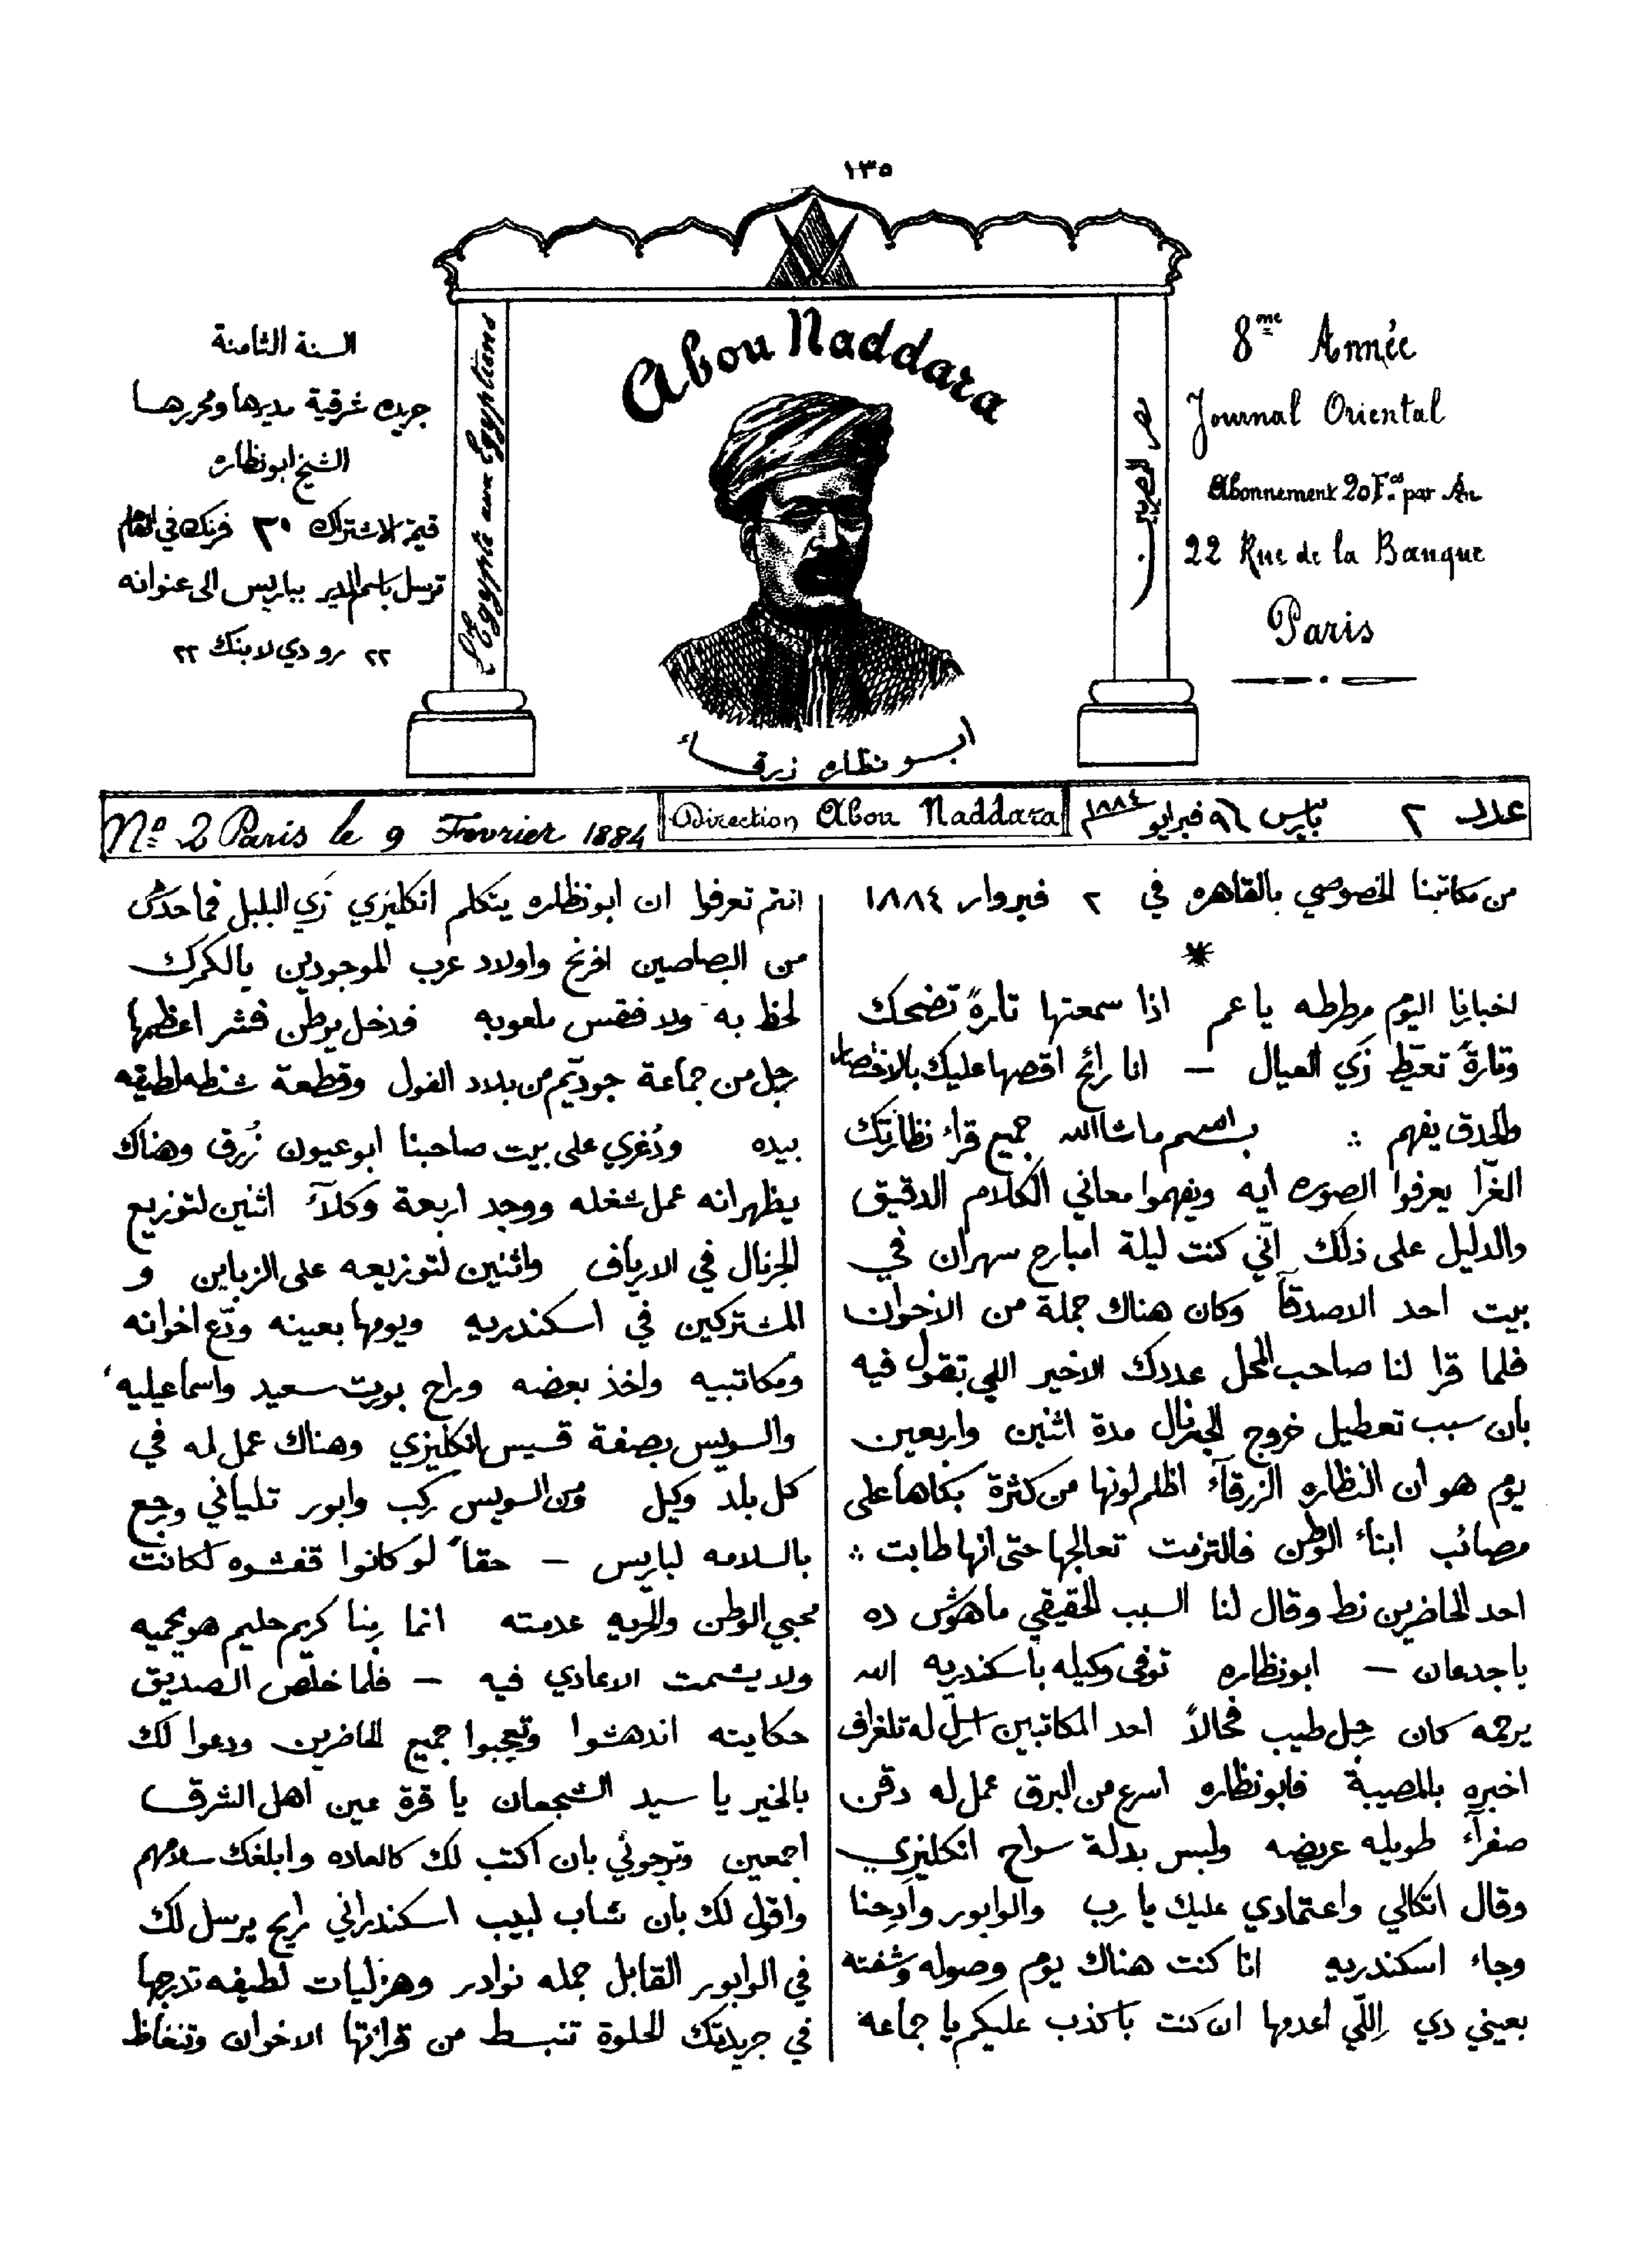 ١٣٥
السنة الثامنة
جريده شرقية مديرها ومحررها
الشيخ ابو نظاره
قيمة الاشتراك ٣٠ فرنك في العام
ترسل باسم المدير بباريس الى عنوانه
٢٢ رو دي لا بنك ٢٢
L'Egypte aux Egyptiens
Abou Naddara
ابو نظاره زرقاء
مصر للمصريين
8me Année
Journal Oriental
Abonnement 20 Fcs par An
22 Rue de la Banque
Paris
No. 2 Paris le 9 Fevrier 1884
Direction Abou Naddara
عدد ٢ باريس ٩ فبرايو ١٨٨٤
من مكاتبنا الخصوصي بالقاهره في ٢ فبروار ١٨٨٤
اخبارنا اليوم مطرطه يا عم اذا سمعتها تارةً تضحك
وتارةً تعيّط زَي العيال — انا رائح اقصها عليك بالاختصار
والحدق يفهم ∴ بسم ماشاالله جميع قراء نظارتك
الغرّا يعرفوا الصوره ايه ويفهموا معاني الكلام الدقيق
والدليل على ذلك انّي كنت ليلة امبارح سهران في
بيت احد الاصدقآ وكان هناك جملة من الاخوان
فلما قرا لنا صاحب المحل عددك الاخير اللي تقول فيه
بان سبب تعطيل خروج الجرنال مدة اثنين واربعين
يوم هو ان النظاره الزرقآء اظلم لونها من كثرة بكاها على
مصائب ابناء الوطن فالتزمت تعالجها حتى انها طابت ∴
احد الحاضرين نط وقال لنا السبب الحقيقي ماهوش ده
يا جدعان — ابو نظاره توفى وكيله باسكندريه الله
يرحمه كان رجل طيب فحالاً احد المكاتبين ارسل له تلغراف
اخبره بالمصيبة فابو نظاره اسرع من البرق عمل له دقن
صفرآء طويله عريضه ولبس بدلة سواح انكليزي
وقال اتكالي واعتمادي عليك يا رب والوابور وادحنا
وجاء اسكندريه انا كنت هناك يوم وصوله وشفته
بعيني دي اِللّي اعدمها ان كنت باكذب عليكم يا جماعه
انتم تعرفوا ان ابو نظاره يتكلم انكليزي زَي البلبل فما حدش
من البصاصين افرنج واولاد عرب الموجودين بالكمرك
لحظ به ولا فقس ملعوبه فدخل بوطن فشر اعظمها
رجل من جماعة جوديم من بلاد الفول وقطعة شنطه لطيفه
بيده ودُغري على بيت صاحبنا ابو عيون زُرق وهناك
يظهر انه عمل شغله ووجد اربعة وكلآء اثنين لتوزيع
الجرنال في الارياف واثنين لتوزيعه على الزباين و
المشتركين في اسكندريه ويومها بعينه ودّع اخوانه
ومكاتبيه واخذ بعضه وراح بورت سعيد واسماعيليه
والسويس بصفة قسيس انكليزي وهناك عمل له في
كل بلد وكيل ومن السويس ركب وابور تلياني ورجع
بالسلامه لباريس — حقاً لو كانوا قفشوه لكانت
محبي الوطن والحريه عدمته انما ربنا كريم حليم هو يحميه
ولا يشمت الاعادي فيه — فلما خلص الصديق
حكايته اندهشوا وتعجبوا جميع الحاضرين ودعوا لك
بالخير يا سيد الشجعان يا قرة عين اهل الشرق
اجمعين وترجوني بان اكتب لك كالعاده وابلغك سلامهم
واقول لك بان شاب لبيب اسكندراني رايح يرسل لك
في الوابور القابل جمله نوادر وهزليات لطيفه تدرجها
في جريدتك الحلوة تنبسط من قرائتها الاخوان وتنغاظ